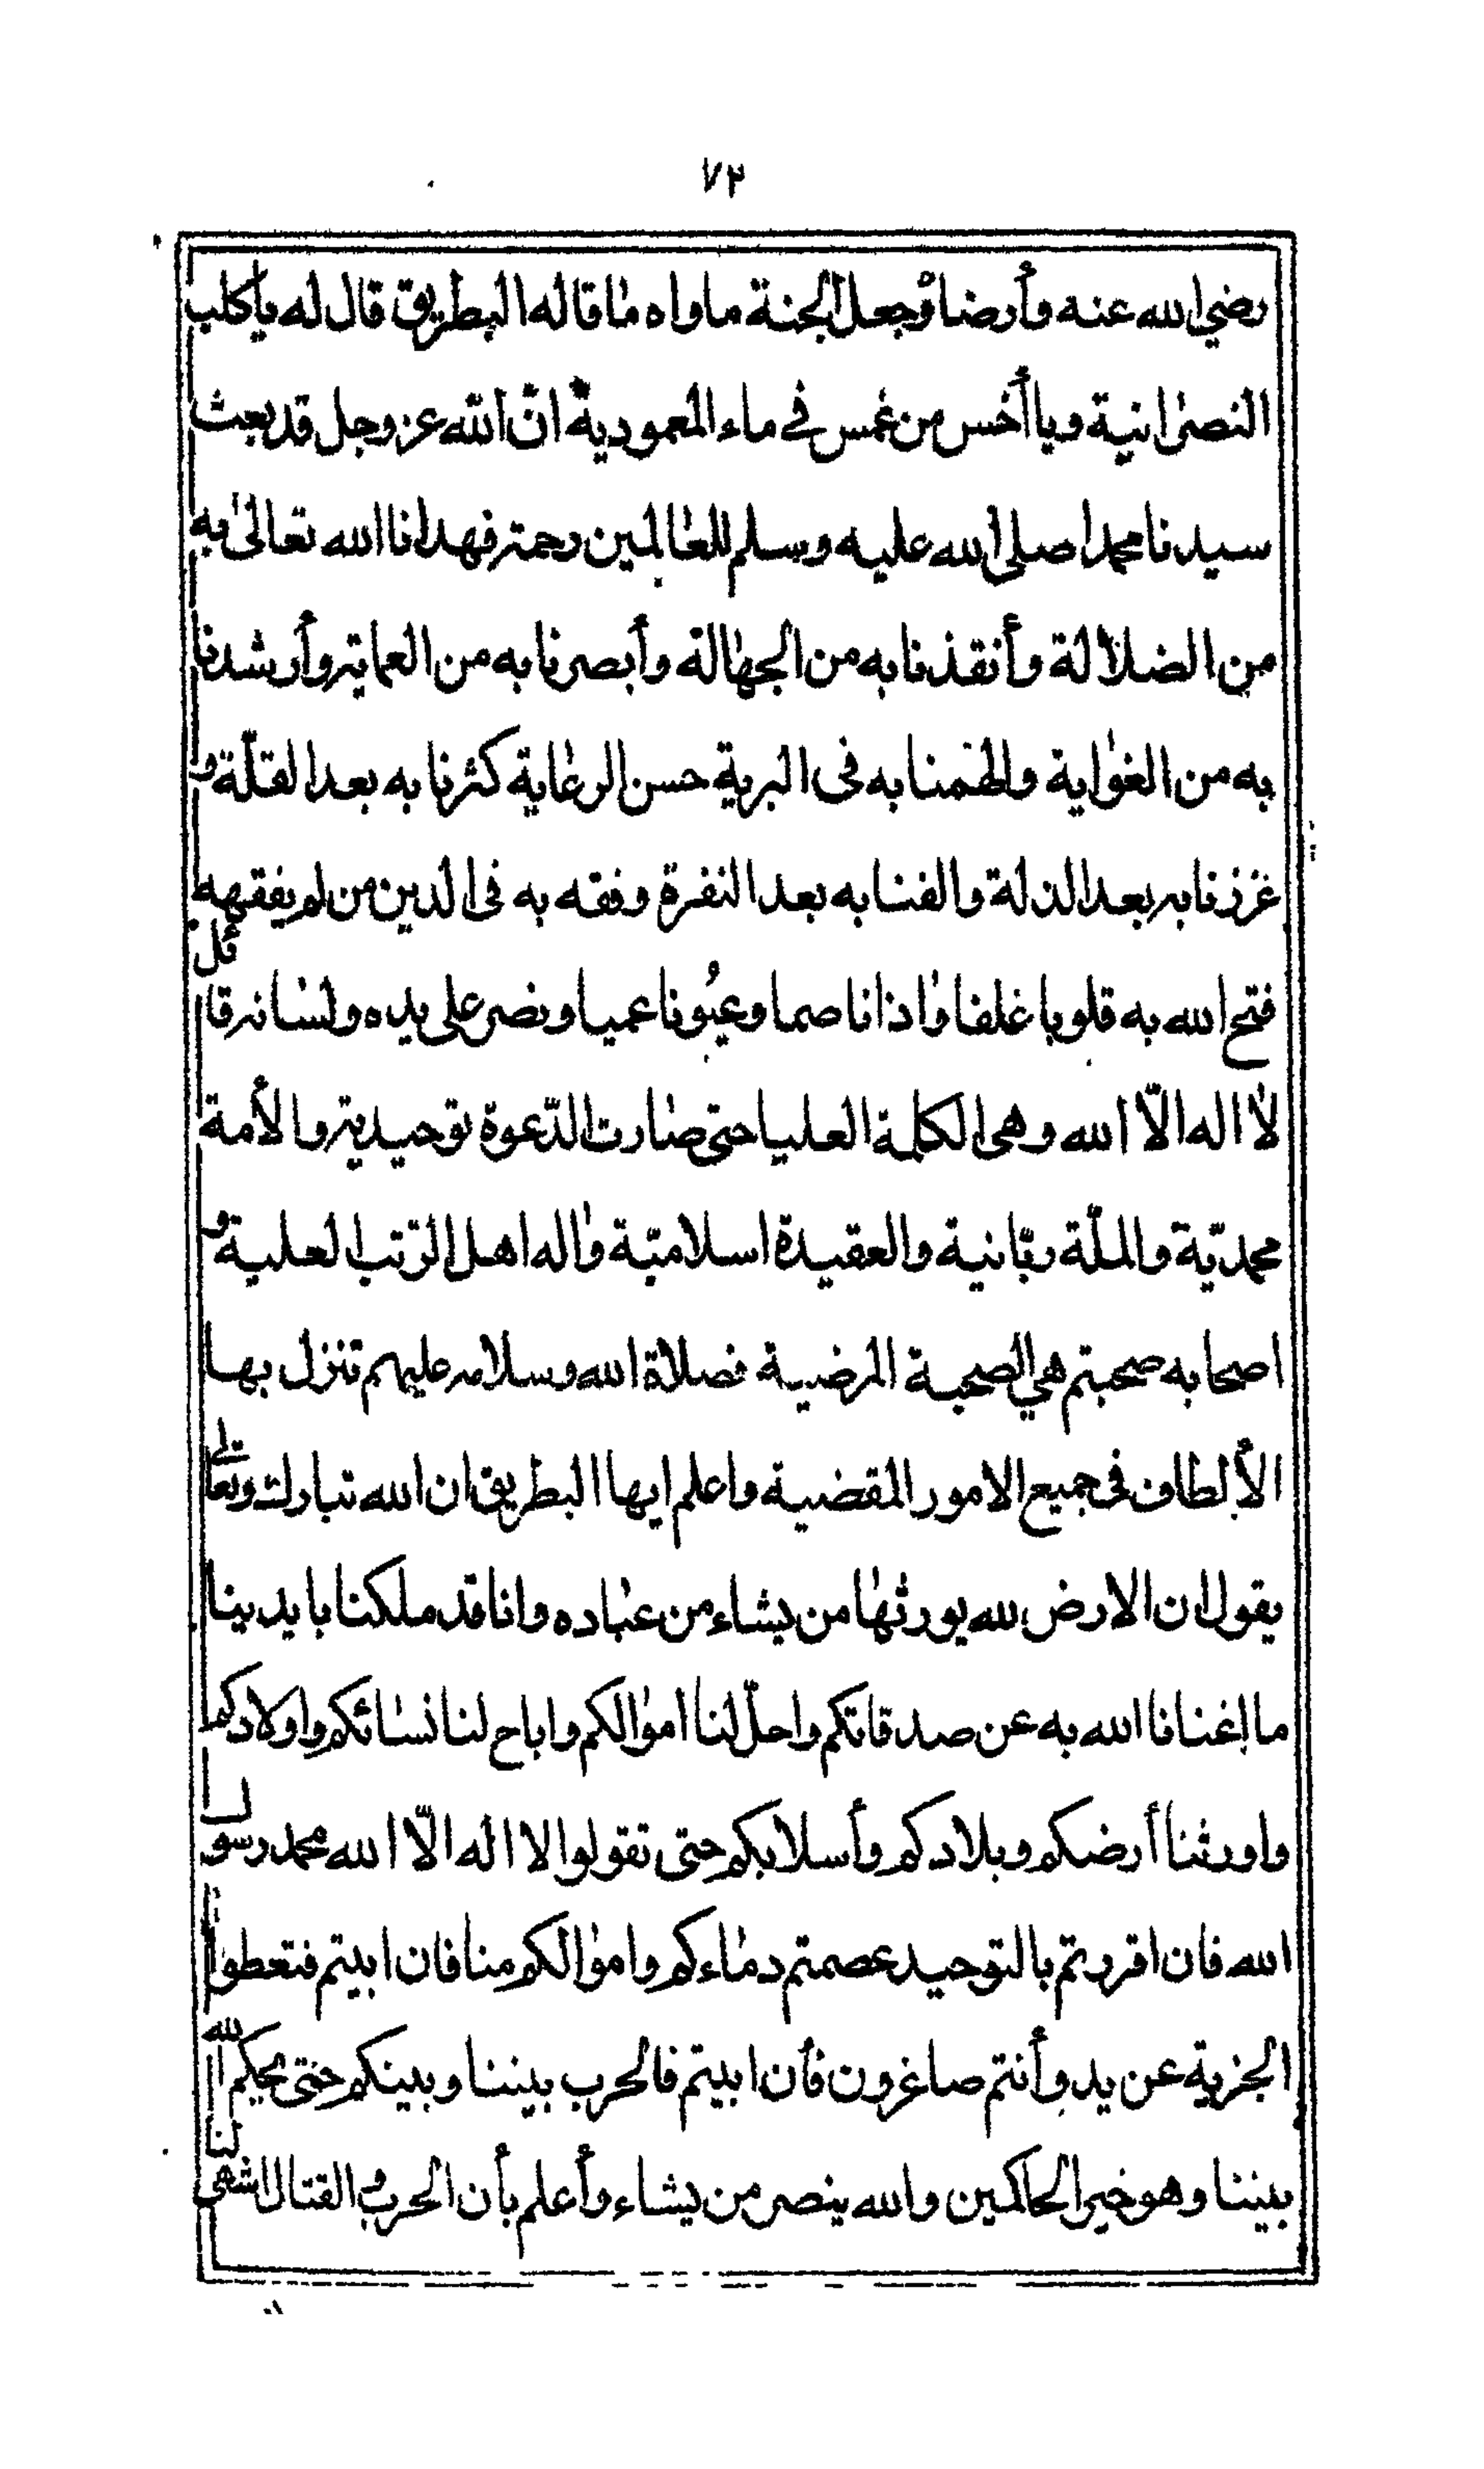 ٧٢
رضي الله عنه وأرضاه وجعل الجنة ماواه ما قاله البطريق قال له يا كلب
النصرانية ويا أخس من غمس في ماء المعمودية انّ الله عز وجل قد بعث
سيدنا محمدا صلى الله عليه وسلم للعالمين رحمة فهدانا الله تعالى به
من الضلالة وأنقذنا به من الجهالة وأبصرنا به من العماية وأرشدنا
به من الغواية والهمنا به فى البرية حسن الرعاية كثرنا به بعد القلّة و
عززنا به بعد الذلة والفنا به بعد النفرة وفقه به فى الدين من لم يفقهه
فتح الله به قلوبا غلفا واذانا صما وعيُونا عميا ونصر على يده ولسانه قائل
لا اله الاّ الله وهى الكلمة العليا حتى صارت الدّعوة توحيدية والأمة
محمديّة والملّة ربّانية والعقيدة اسلاميّة واله اهل الرّتب العلية و
اصحابه صحبتهم هي الصحبة المرضية فصلاة الله وسلامه عليهم تنزل بها
الألطاف فى جميع الامور المقضية واعلم ايها البطريق ان الله تبارك وتعالى
يقول ان الارض لله يورثها من يشاء من عباده وانا قد ملكنا بايدينا
ما اغنانا الله به عن صدقاتكم واحلّ لنا اموالكم واباح لنا نسائكم واولادكم
واورثنا أرضكم وبلادكم وأسلابكم حتى تقولوا لا اله الاّ الله محمد رسول
الله فان اقررتم بالتوحيد عصمتم دماءكم واموالكم منا فان ابيتم فتعطوا
الجزية عن يد وأنتم صاغرون فأن ابيتم فالحرب بيننا وبينكم حتى يحكم الله
بيننا وهو خير الحاكمين والله ينصر من يشاء وأعلم بأن الحرب والقتال اشهى لنا